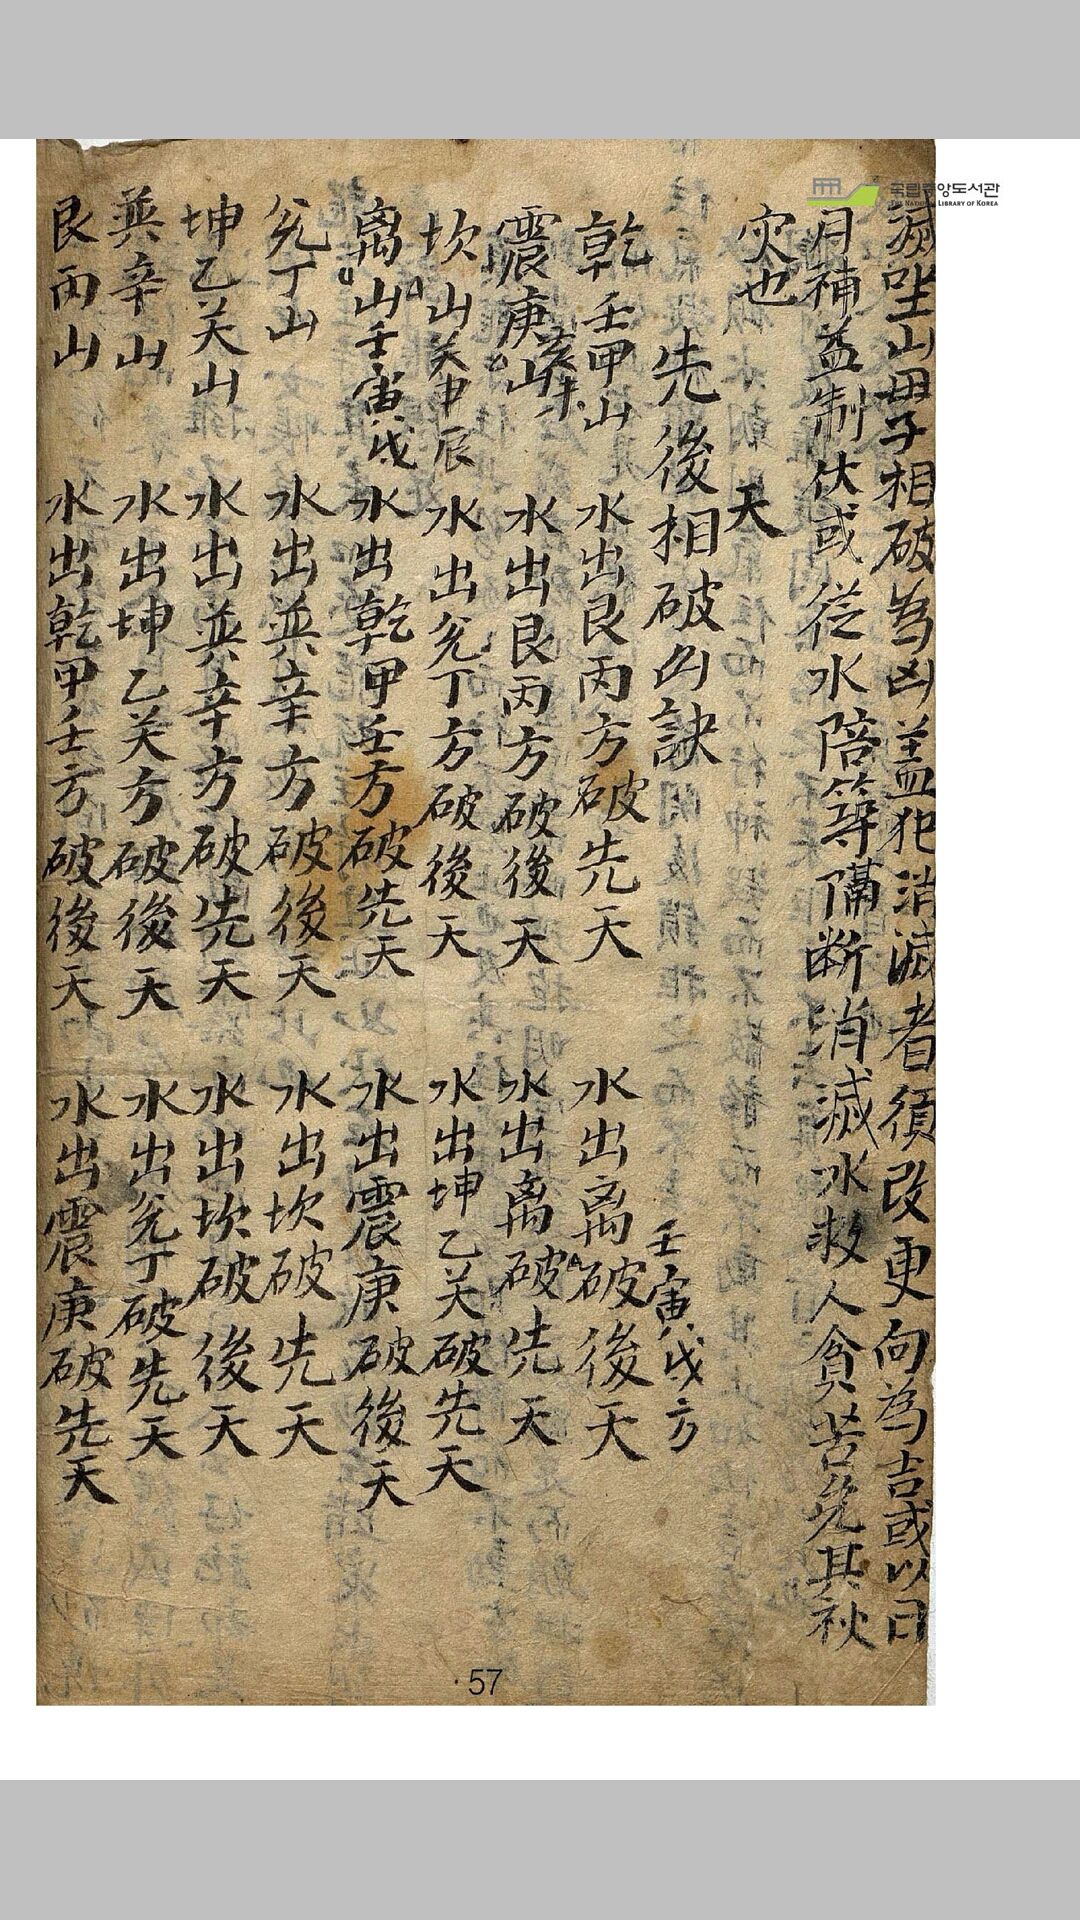 滅坐山母子相破為凶盖犯消滅者須改更向為吉或以日
月補益制伏或從水陪等隔断消滅水救人貪苦免其秋
灾也
天
先後相破凶訣
乾壬甲山 水出艮丙方破先天 水出离破後天 壬寅戌方
震庚山 水出艮丙方破後天 水出离破先天
坎山癸申辰 水出兊丁方破後天 水出坤乙癸破先天
离山壬寅戌 水出乾甲壬方破先天 水出震庚破後天
兊丁山 水出巽辛方破後天 水出坎破先天
坤乙癸山 水出巽辛方破先天 水出坎破後天
巽辛山 水出坤乙癸方破後天 水出兊丁破先天
艮丙山 水出乾甲壬方破後天 水出震庚破先天
57
국립중앙도서관
THE NATIONAL LIBRARY OF KOREA